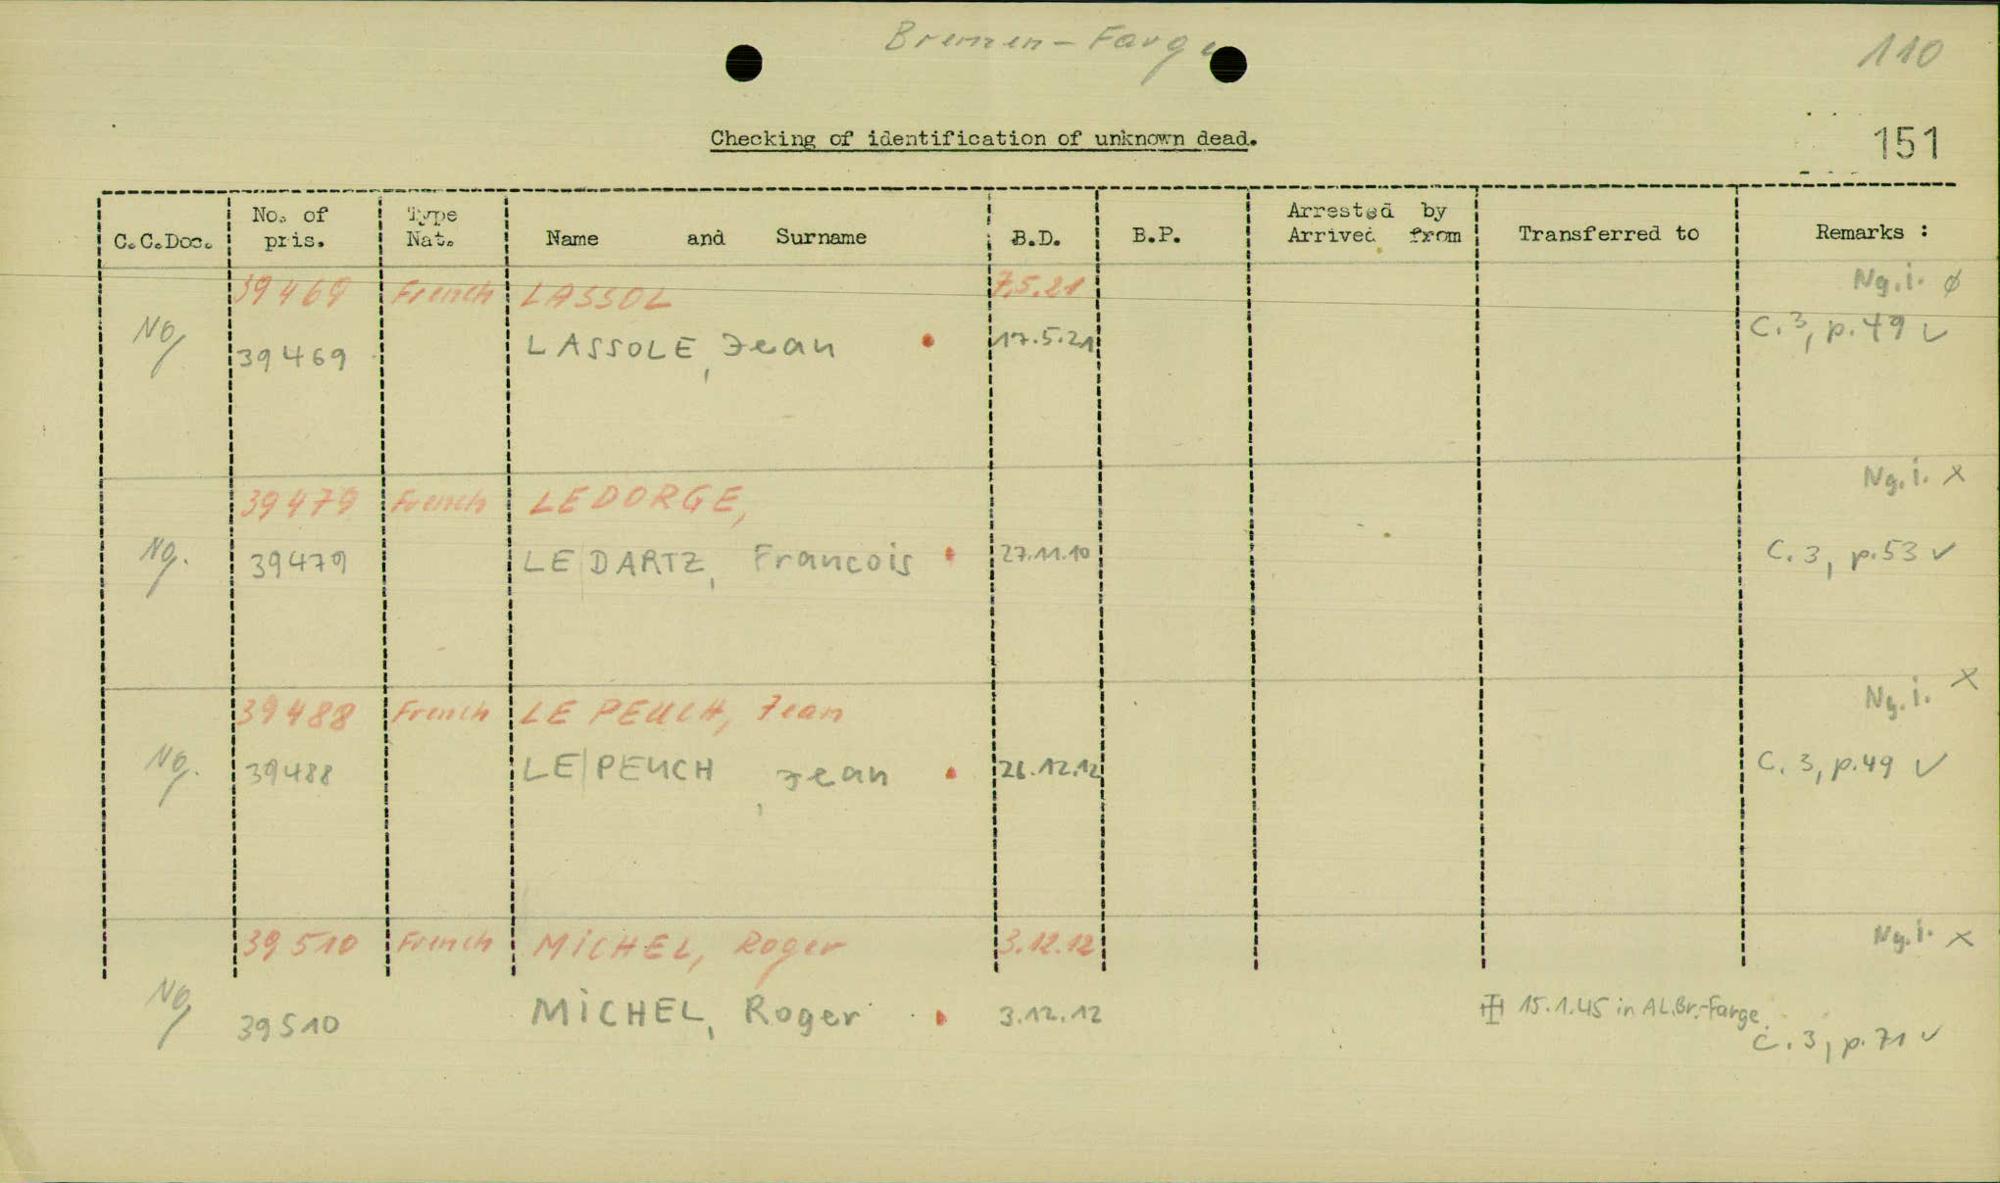 Bremen-Farge
110
Checking of identification of unknown dead.
151
C.C.Doc. No. of pris. Type Nat. Name and Surname B.D. B.P. Arrested by Arrived from Transferred to Remarks :
39469 French LASSOL 7.5.21 Ng.i. ø
Ng 39469 LASSOLE, Jean 17.5.21 C.3, p.49 ✓
39479 French LEDORGE, Ng.i. x
Ng. 39479 LE|DARTZ, Francois 27.11.10 C.3, p.53 ✓
39488 French LE PEUCH, Jean Ng.i. x
Ng. 39488 LE|PEUCH, Jean 26.12.12 C.3, p.49 ✓
39510 French MICHEL, Roger 3.12.12 Ng.i. x
Ng 39510 MICHEL, Roger 3.12.12 15.1.45 in AL.Br.-Farge.
C.3, p.71 ✓